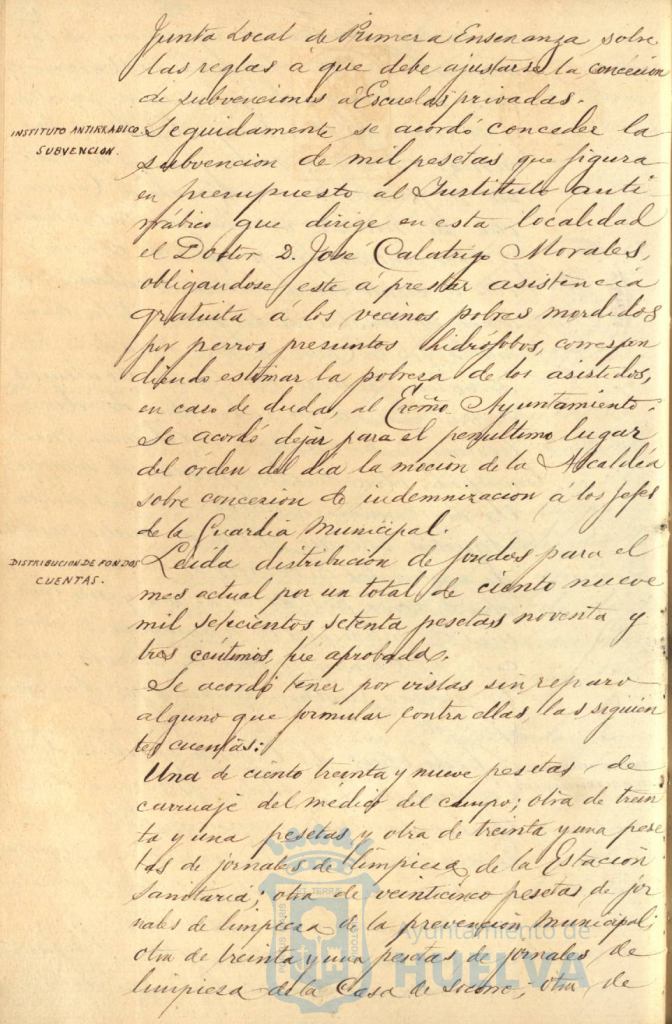 Junta Local de Primera Enseñanza sobre
las reglas á que debe ajustarse la concecion
de subvenciones á Escuelas privadas.
INSTITUTO ANTIRRABICO
SUBVENCION.
Seguidamente se acordó conceder la
subvencion de mil pesetas que figura
en presupuesto al Instituto anti
rrábico que dirige en esta localidad
el Doctor D. José Calatrigo Morales,
obligandose este á prestar asistencia
gratuita á los vecinos pobres mordidos
por perros presuntos hidrófobos, correspon
diendo estimar la pobreza de los asistidos,
en caso de duda, al Excmo. Ayuntamiento.
Se acordó dejar para el penultimo lugar
del órden del dia la mocion de la Alcaldía
sobre concesion de indemnizacion á los Jefes
de la Guardia Municipal.
DISTRIBUCION DE FONDOS
CUENTAS.
Leida distribucion de fondos para el
mes actual por un total de ciento nueve
mil setecientos setenta pesetas noventa y
tres céntimos, fue aprobada.
Se acordó tener por vistas sin reparo
alguno que formular contra ellas, las siguien
tes cuentas:
Una de ciento treinta y nueve pesetas de
carruaje del médico del campo; otra de trein
ta y una pesetas y otra de treinta y una pese
tas de jornales de limpieza de la Estación
Sanitaria; otra de veinticinco pesetas de jor
nales de limpieza de la prevención Municipal;
otra de treinta y una pesetas de jornales de
limpieza de la Casa de Socorro; otra de
Ayuntamiento de
HUELVA